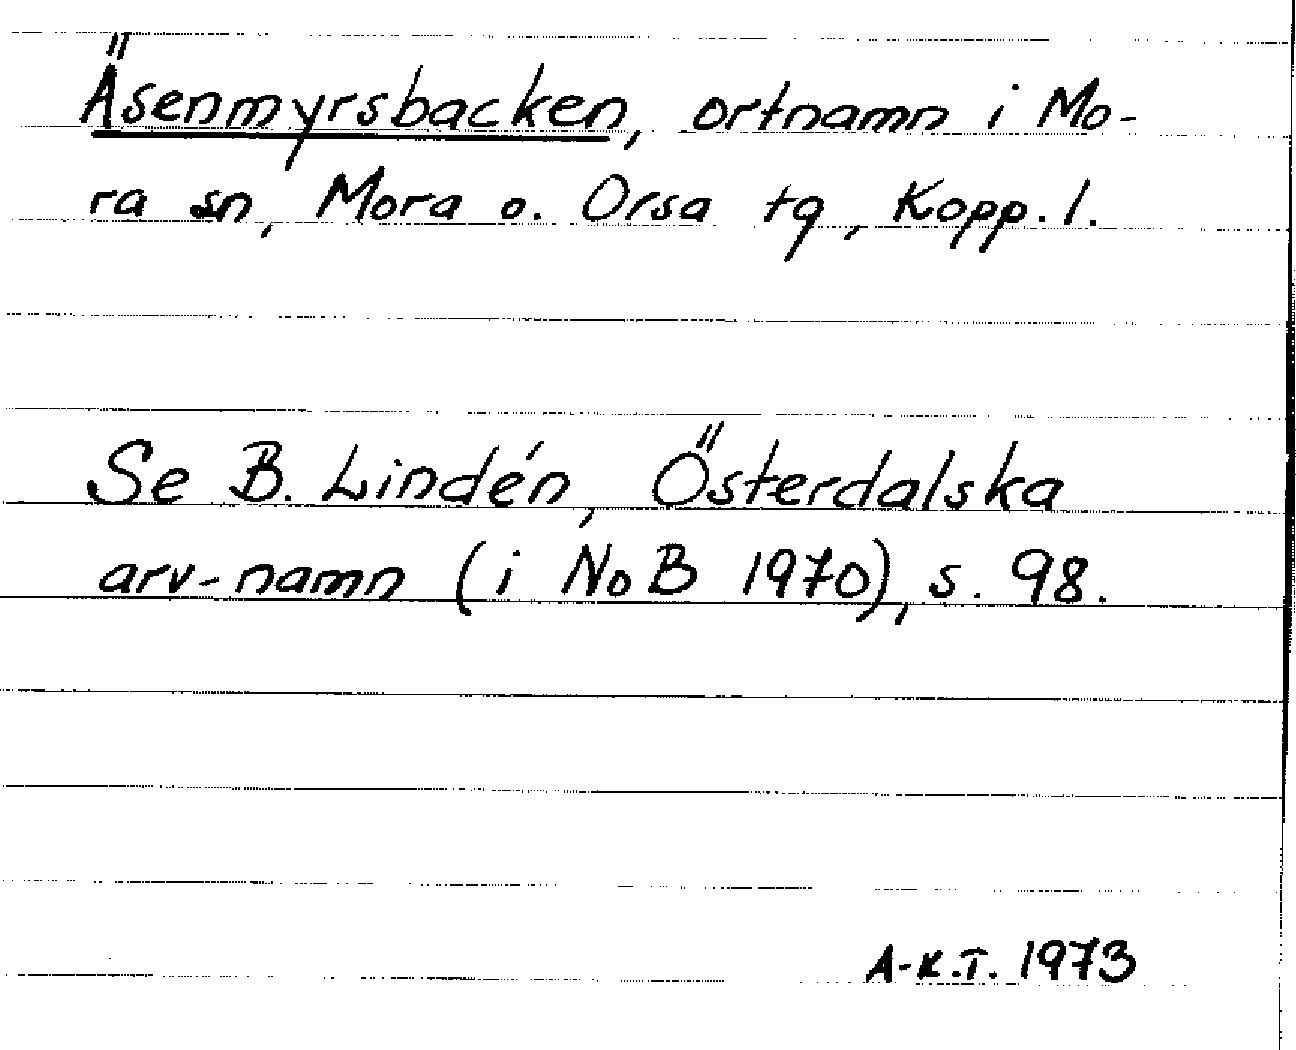 Äsenmyrsbacken, ortnamn i Mo-
ra sn, Mora o. Orsa tg, Kopp. l.
Se B. Lindén, Österdalska
arv-namn (i NoB 1970), s. 98.
A-K.T. 1973